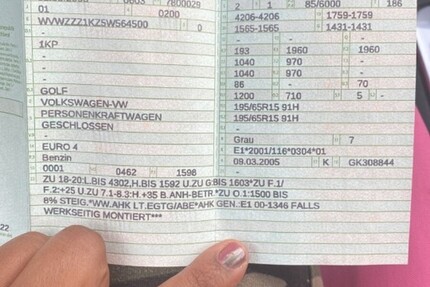 0603 7800029 2 1 85/6000 186
01 0200 4206-4206 1759-1759
WVWZZZ1KZ5W564500 0 1565-1565 1431-1431
-
1KP 193 1960 1960
- 1040 970 -
- 1040 970 -
- 86 - 70
GOLF 1200 710 5 -
VOLKSWAGEN-VW 195/65R15 91H
PERSONENKRAFTWAGEN 195/65R15 91H
GESCHLOSSEN -
- Grau 7
EURO 4 E1*2001/116*0304*01
Benzin 09.03.2005 K GK308844
0001 0462 1598
ZU 18-20:L.BIS 4302,H.BIS 1592 U.ZU G:BIS 1603*ZU F.1/
F.2:+25 U.ZU 7.1-8.3:H.+35 B.ANH-BETR.*ZU O.1:1500 BIS
8% STEIG.*WW.AHK LT.EGTG/ABE*AHK GEN.:E1 00-1346 FALLS
WERKSEITIG MONTIERT***
22